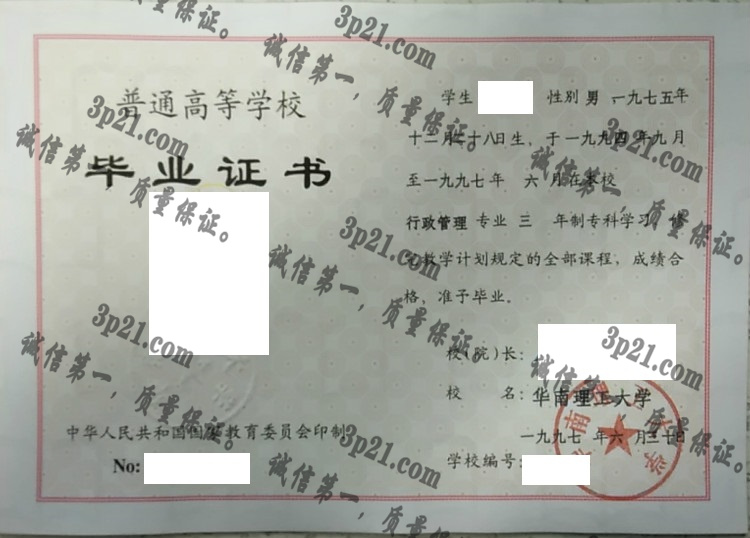 普通高等学校
毕业证书
中华人民共和国国家教育委员会印制
No:
学生 性别 男 ,一九七五年
十二月二十八日生，于一九九四年九月
至一九九七年 六 月在本校
行政管理 专业 三 年制专科学习，修
完教学计划规定的全部课程，成绩合
格，准予毕业。
校（院）长：
校 名：华南理工大学
一九九七 年 六 月三十日
学校编号：
3p21.com
诚信第一，质量保证。
3p21.com
诚信第一，质量保证。
3p21.com
诚信第一，质量保证。
3p21.com
诚信第一，质量保证。
3p21.com
诚信第一，质量保证。
3p21.com
诚信第一，质量保证。
3p21.com
诚信第一，质量保证。
3p21.com
诚信第一，质量保证。